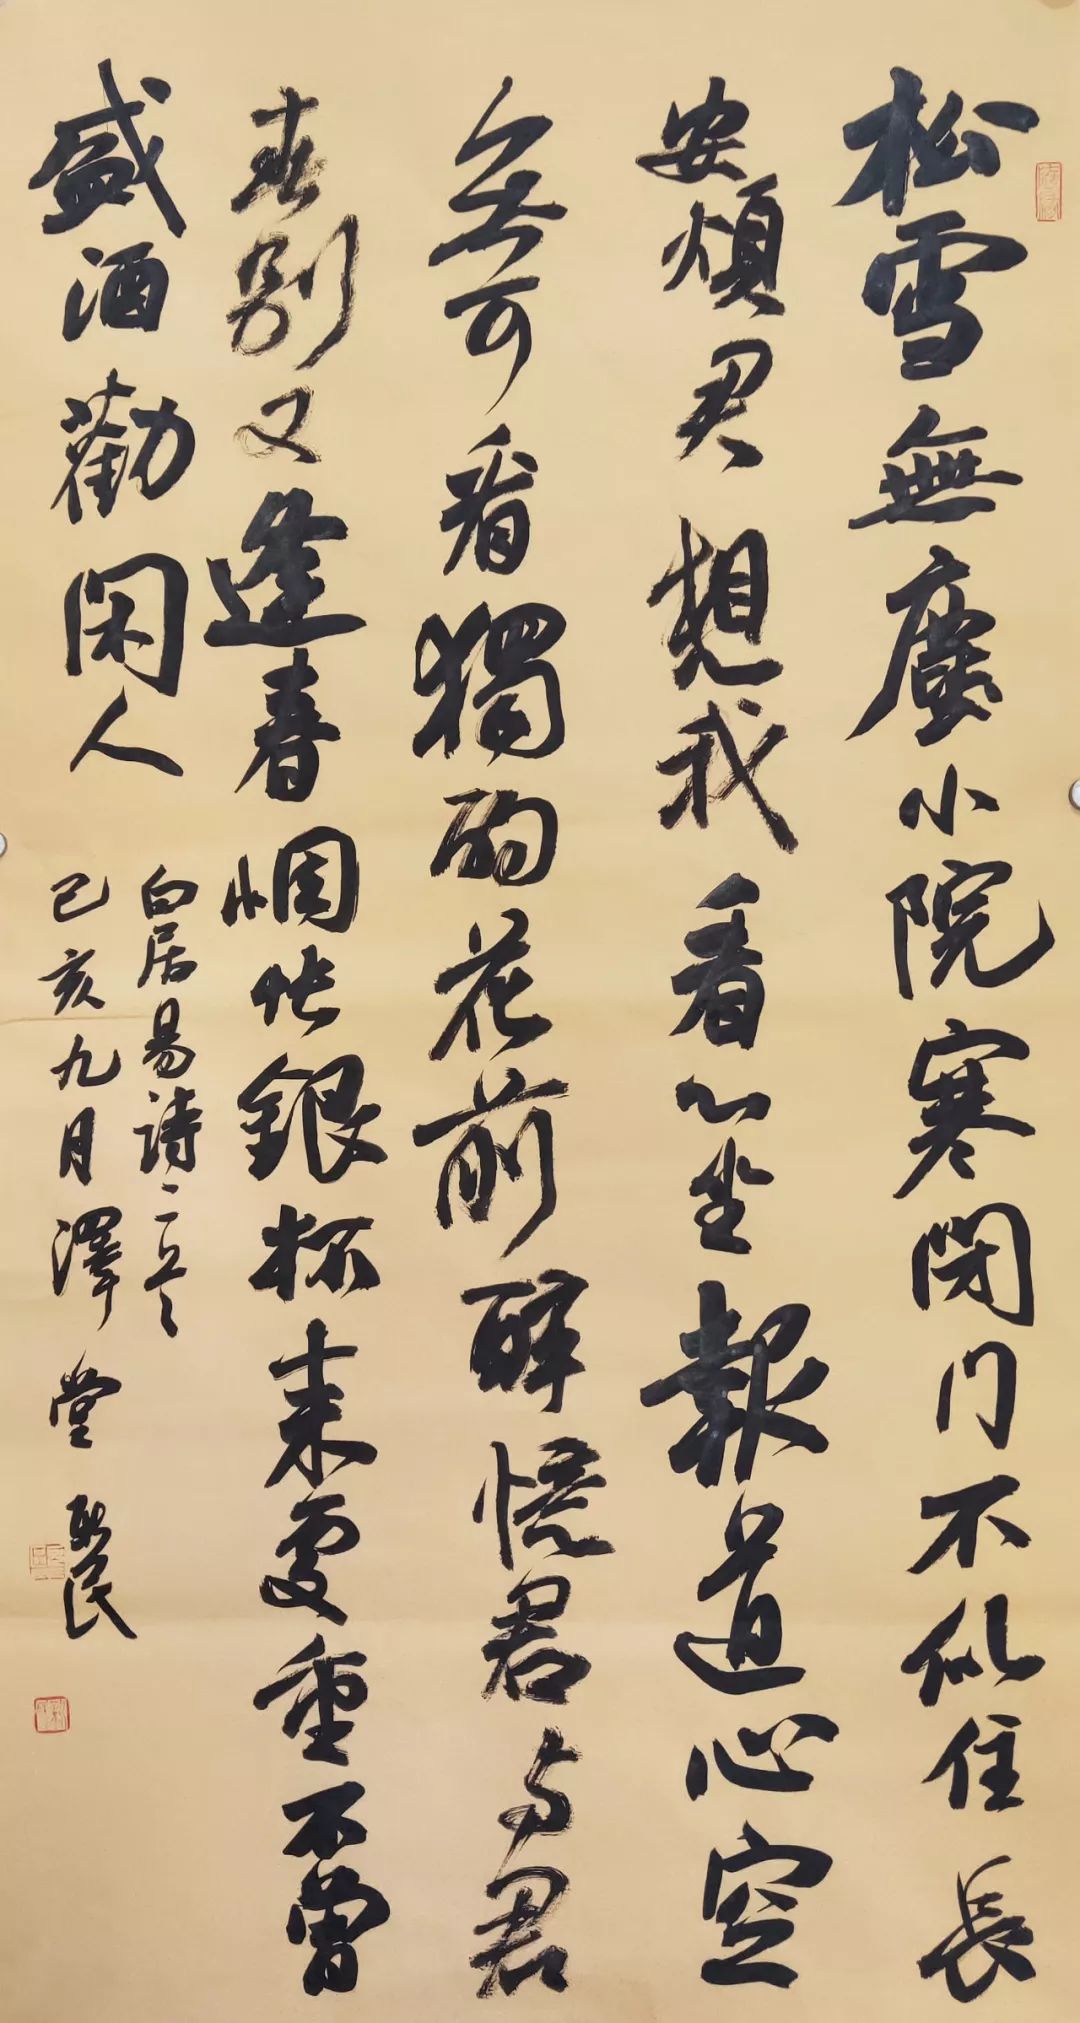 松雪無塵小院寒閉门不似住長
安煩君想我看心坐報道心空
無可看獨酌花前醉憶君与君
春别又逢春惆悵銀杯來處重不曾
盛酒勸閑人
白居易詩二首
己亥九月澤堂